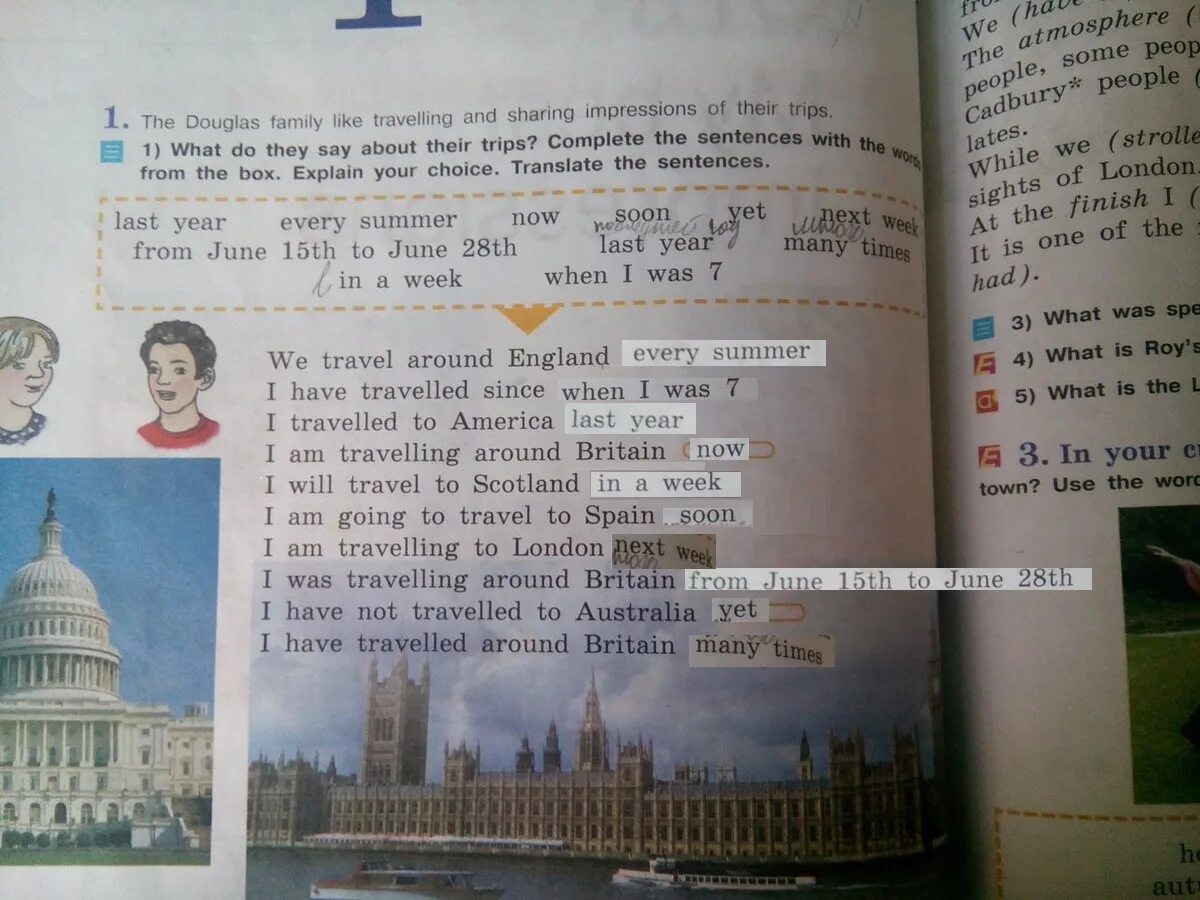 1. The Douglas family like travelling and sharing impressions of their trips.
1) What do they say about their trips? Complete the sentences with the words
from the box. Explain your choice. Translate the sentences.
last year every summer now soon yet next week
from June 15th to June 28th last year many times
in a week when I was 7
We travel around England every summer
I have travelled since when I was 7
I travelled to America last year
I am travelling around Britain now
I will travel to Scotland in a week
I am going to travel to Spain soon
I am travelling to London next week
I was travelling around Britain from June 15th to June 28th
I have not travelled to Australia yet
I have travelled around Britain many times
We (have
The atmosphere (
people, some peop
Cadbury* people (
lates.
While we (strolle
sights of London.
At the finish I (
It is one of the
had).
3) What was spe
4) What is Roy's
5) What is the L
3. In your c
town? Use the word